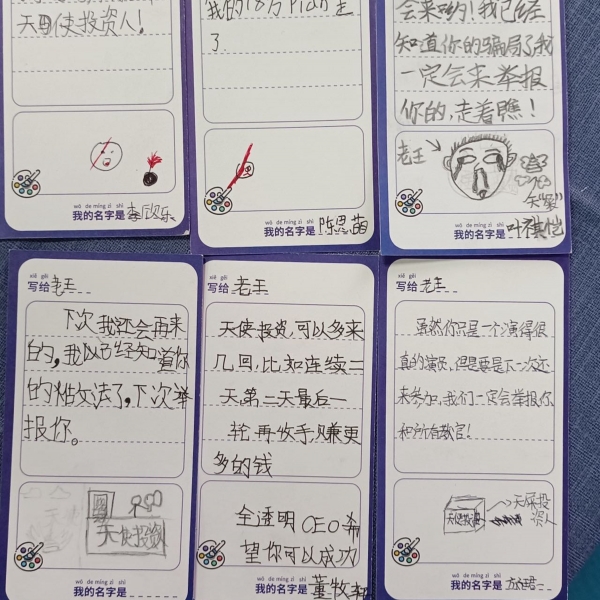 天使投资人！
wǒ de míng zì shì
我的名字是
我的18万Plan走
了.
wǒ de míng zì shì
我的名字是 陈思萌
会来哟！我已经
知道你的骗局了我
一定会来举报
你的，走着瞧！
老王
wǒ de míng zì shì
我的名字是 叶祺恺
xiě gěi
写给 老王
下次我还会再来
的，我以已经知道你
的做法了，下次举
报你。
天使投资
wǒ de míng zì shì
我的名字是
xiě gěi
写给 老王
天使投资，可以多来
几回，比如连续二
天，第二天最后一
轮，再收手，赚更
多的钱
全透明 CEO希
望你可以成功
wǒ de míng zì shì
我的名字是 董牧
xiě gěi
写给 老王
虽然你只是一个演得很
真的演员，但是要是下一次还
来参加，我们一定会举报你
和所有教官！
天使投资
天使投
资人
wǒ de míng zì shì
我的名字是